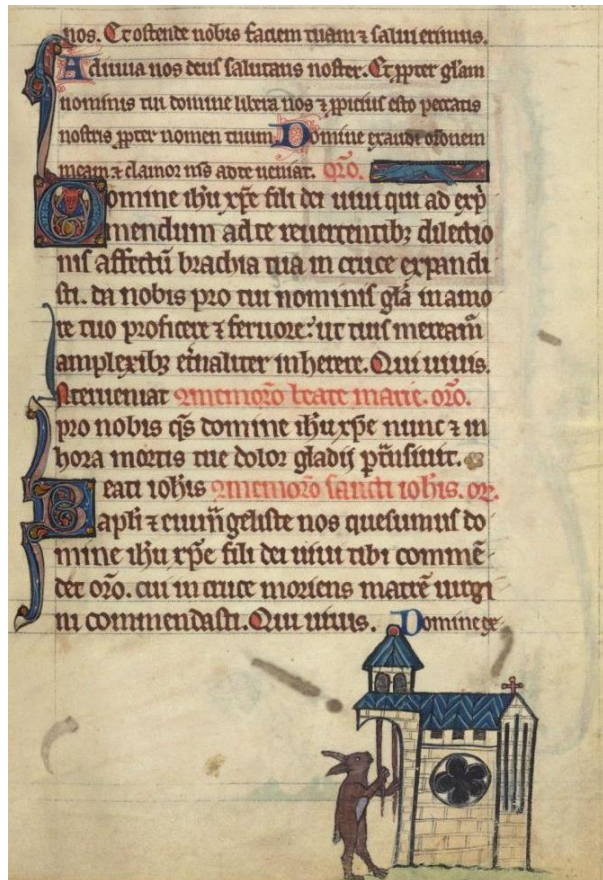 nos. Et ostende nobis faciem tuam ⁊ salui erimus.
Adiuua nos deus salutaris noster. Et ꝓpter gl̃am
nominis tui domine libera nos ⁊ ꝓpicius esto peccatis
nostris ꝓpter nomen tuum Domine exaudi or̃onem
meam ⁊ clamor ms̃ ad te ueniat. or̃o.
Domine ih̃u xp̃e fili dei uiui qui ad exp̃
mendum ad te reuertentibꝫ dilectio
nis affectũ brachia tua in cruce expandi
sti. da nobis pro tui nominis gl̃a in amo
re tuo proficere ⁊ feruore: ut tuis meream̃
amplexibꝫ et̃naliter inherere. Qui uiuis.
Interueniat memor̃o beate marie. or̃o.
pro nobis qs̃ domine ih̃u xp̃e nunc ⁊ in
hora mortis tue dolor gladij ꝑtr̃nsiuit.
Beati ioh̃is memor̃o sancti ioh̃is. or̃.
apl̃i ⁊ euuñgeliste nos quesumus do
mine ih̃u xp̃e fili dei uiui tibi commẽ
det or̃o. cui in cruce moriens matrẽ uirgi
ni commendasti. Qui uiuis. Domine ge